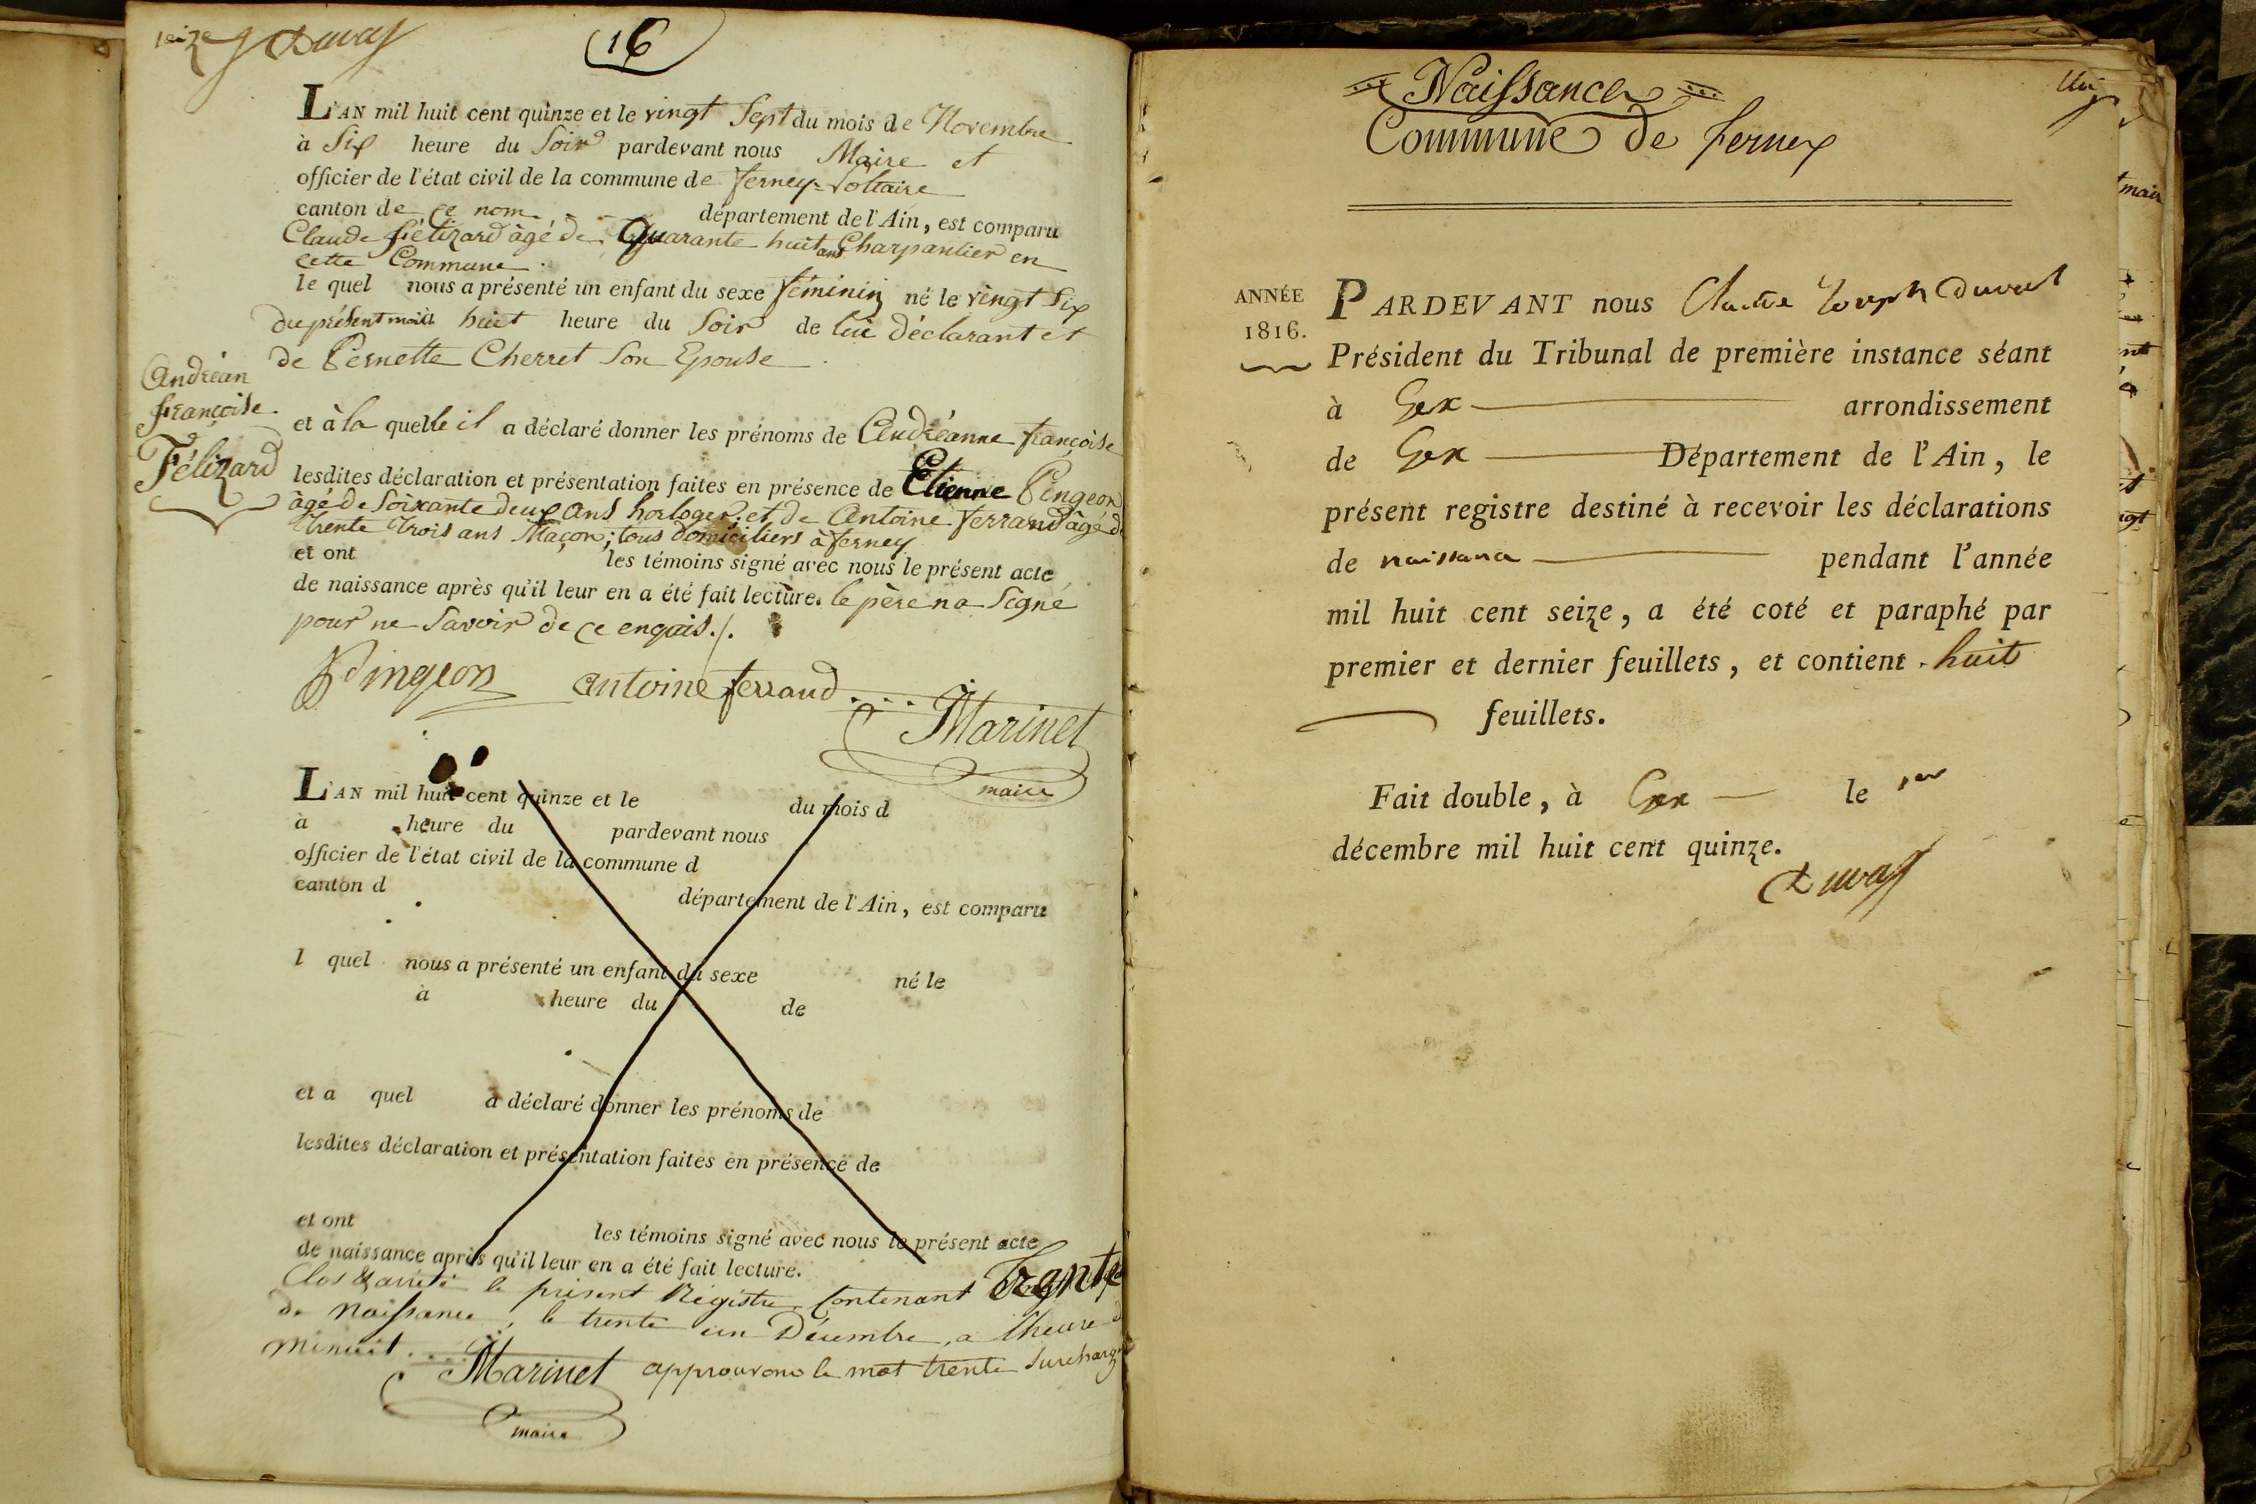 seize Duval
16
L'AN mil huit cent quinze et le vingt Sept du mois de Novembre
à Six heure du Soir pardevant nous Maire et
officier de l'état civil de la commune de ferney=Voltaire
canton de ce nom département de l'Ain, est comparu
Claude Félizard âgé de Quarante huit ans Charpantier en
cette Commune.
le quel nous a présenté un enfant du sexe féminin né le vingt Six
du présent mois huit heure du Soir de lui déclarant et
de Pernette Cherret Son Epouse
Andréan
françoise
Félizard
et à la quelle il a déclaré donner les prénoms de Andréanne françoise
lesdites déclaration et présentation faites en présence de Etienne Pingeon
âgé de Soixante deux ans horloger; et de Antoine ferrand âgé de
trente trois ans Maçon; tous domiciliers à ferney
et ont les témoins signé avec nous le présent acte
de naissance après qu'il leur en a été fait lecture. le père na Signé
pour ne Savoir de ce enquis./.
Pingeon antoine ferraud
Marinet
maire
L'AN mil huit cent quinze et le du mois d
à heure du pardevant nous
officier de l'état civil de la commune d
canton d département de l'Ain, est comparu
l quel nous a présenté un enfant du sexe né le
à heure du de
et a quel a déclaré donner les prénoms de
lesdites déclaration et présentation faites en présence de
et ont les témoins signé avec nous le présent acte
de naissance après qu'il leur en a été fait lecture.
Clos & arrêté le présent Régistre Contenant Trente
de Naissance, le trente un Décembre, a l'heure d
minuit. Marinet approuvons le mot trente Surchargé
maire
Naissance
Commune de ferney
ANNÉE
1816.
PARDEVANT nous Claude Joseph Duval
Président du Tribunal de première instance séant
à Gex arrondissement
de Gex Département de l'Ain, le
présent registre destiné à recevoir les déclarations
de naissance pendant l'année
mil huit cent seize, a été coté et paraphé par
premier et dernier feuillets, et contient huit
feuillets.
Fait double, à Gex le 1er
décembre mil huit cent quinze.
Duval